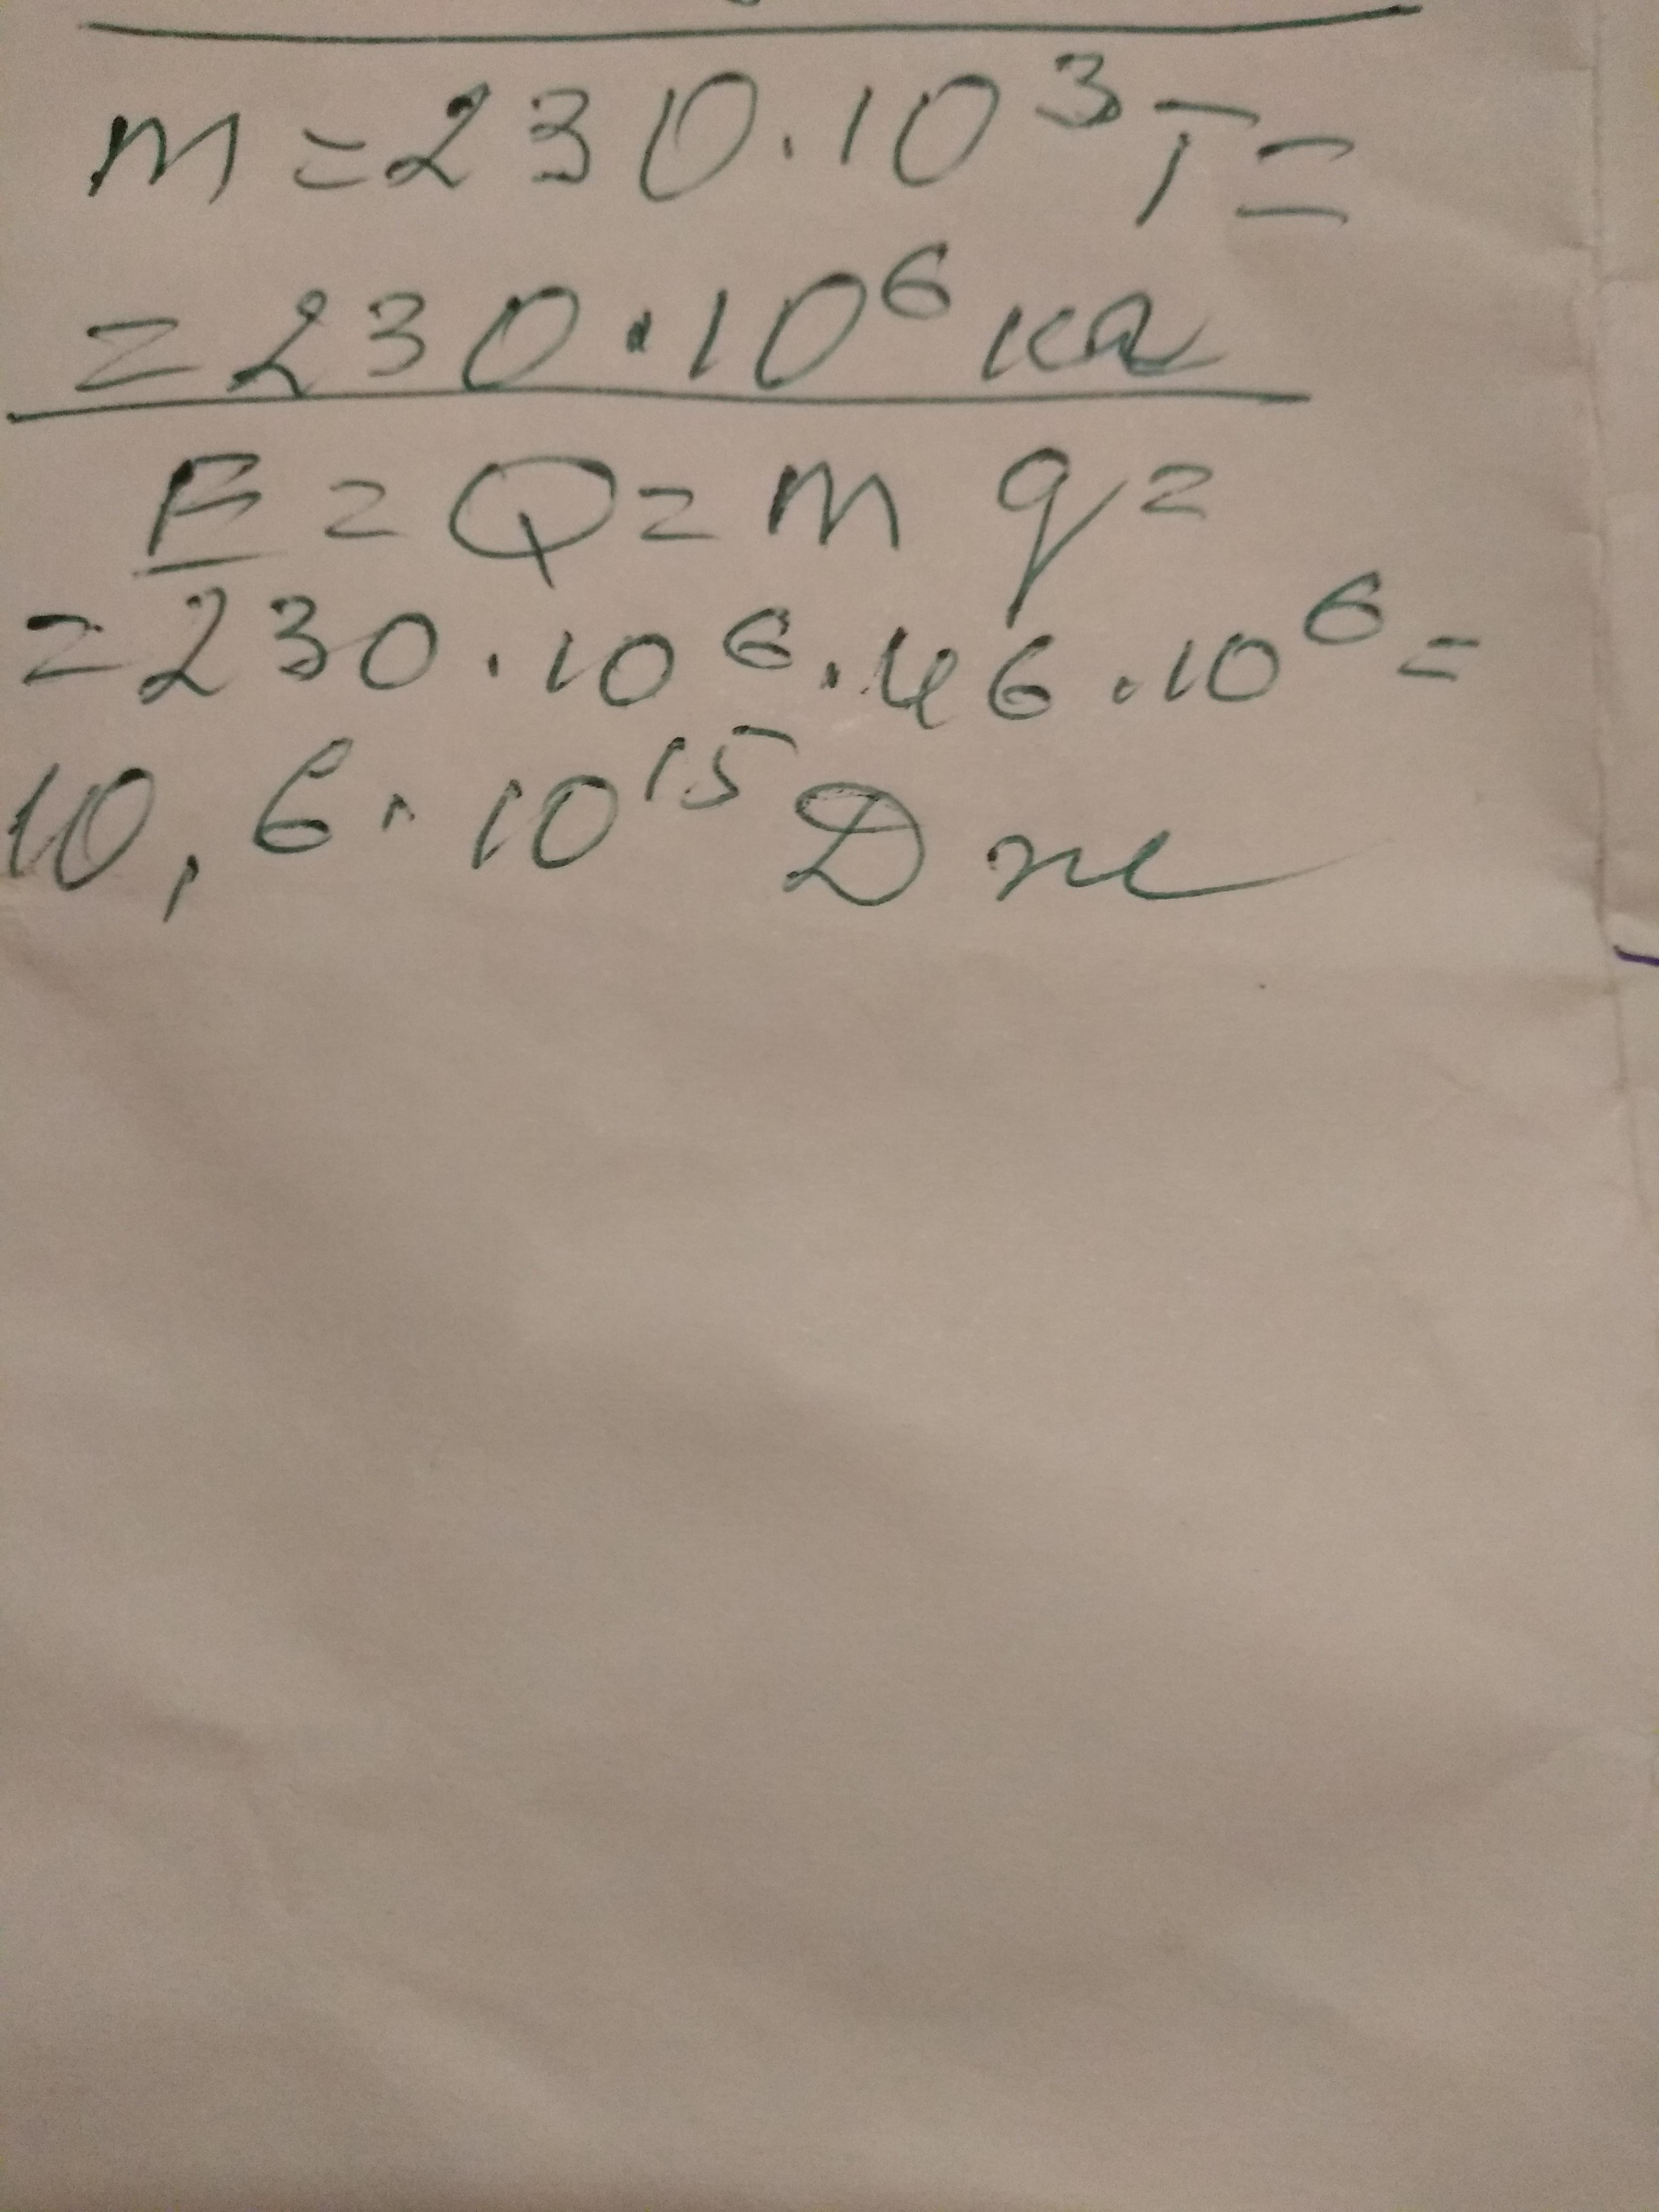 m = 230 · 10³ т =
= 230 · 10⁶ кг
E = Q = m q =
= 230 · 10⁶ · 46 · 10⁶ =
10,6 · 10¹⁵ Дж